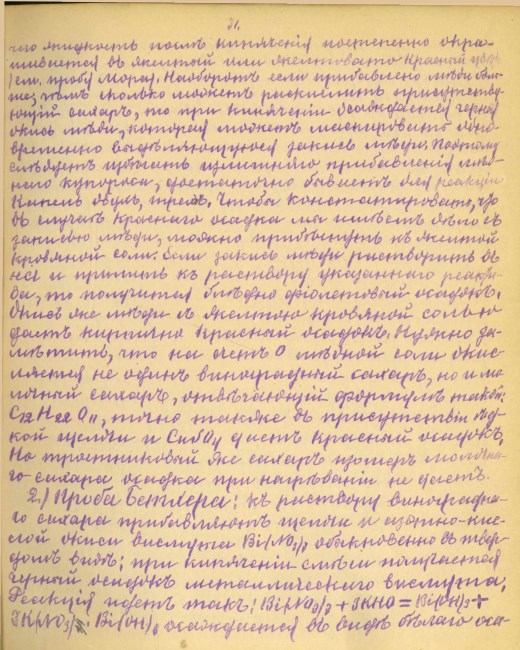 31.
что жидкость послѣ кипяченія постепенно окра-
шивается въ желтый или желтовато красный цвѣтъ
(см. пробу Мора). Наоборотъ если прибавлено мѣди боль-
ше, чѣмъ сколько можетъ раскислить присутству-
ющій сахаръ, то при кипяченіи осаждается черная
окись мѣди, которая можетъ маскировать одно-
временно выдѣляющуюся закись мѣди. Поэтому
слѣдуетъ избѣгать излишняго прибавленія мѣд-
наго купороса, достаточно бываетъ для реакціи
капель двухъ, трехъ. Чтобы констатировать, что
въ случаѣ краснаго осадка мы имѣемъ дѣло съ
закисью мѣди, можно прибѣгнуть къ желтой
кровяной соли: если закись мѣди растворить въ
HCl и прилить къ раствору указаннаго реакти-
ва, то получится блѣдно фіолетовый осадокъ.
Окись же мѣди съ желтою кровяной солью
даетъ кирпично красный осадокъ. Нужно за-
мѣтить, что на счетъ O мѣдной соли окис-
ляется не одинъ виноградный сахаръ, но и мо-
лочный сахаръ, отвѣчающій формулѣ такой:
C12H22O11, точно также въ присутствіи ѣд-
кой щелочи и CuSO4 даетъ красный осадокъ.
Но тростниковый же сахаръ изомеръ молочна-
го сахара осадка при нагрѣваніи не даетъ.
2.) Проба Бетгера: къ раствору виноградна-
го сахара прибавляютъ щелочи и азотно-кис-
лой окиси висмута Bi(NO3)3 обыкновенно въ твер-
домъ видѣ; при кипяченіи смѣси получается
черный осадокъ металлическаго висмута.
Реакція идетъ такъ: Bi(NO3)3 + 3KHO = Bi(OH)3 +
3K(NO3). Bi(OH)3 осаждается въ видѣ бѣлаго оса-